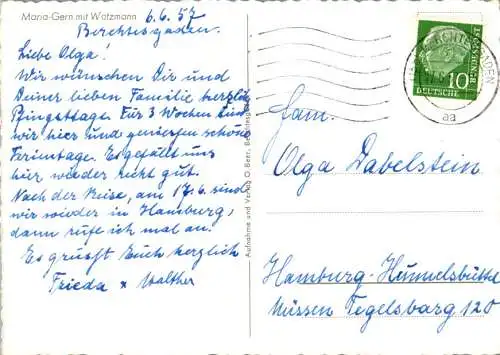 Maria-Gern mit Watzmann
6.6.57
Berchtesgaden.
Liebe Olga!
Wir wünschen Dir und
Deiner lieben Familie herzlich
Pfingsttage. Für 3 Wochen sind
wir hier und genießen schöne
Ferientage. Es gefällt uns
hier wieder recht gut.
Nach der Reise, am 17.6. sind
wir wieder in Hamburg,
dann rufe ich mal an.
Es grüßt Euch herzlich
Frieda & Walther
Aufnahme und Verlag O. Beer, Berchtesgaden
10
DEUTSCHE
aa
Fam.
Olga Dabelstein
Hamburg-Hummelsbüttel
Müssen Tegelsbarg 120